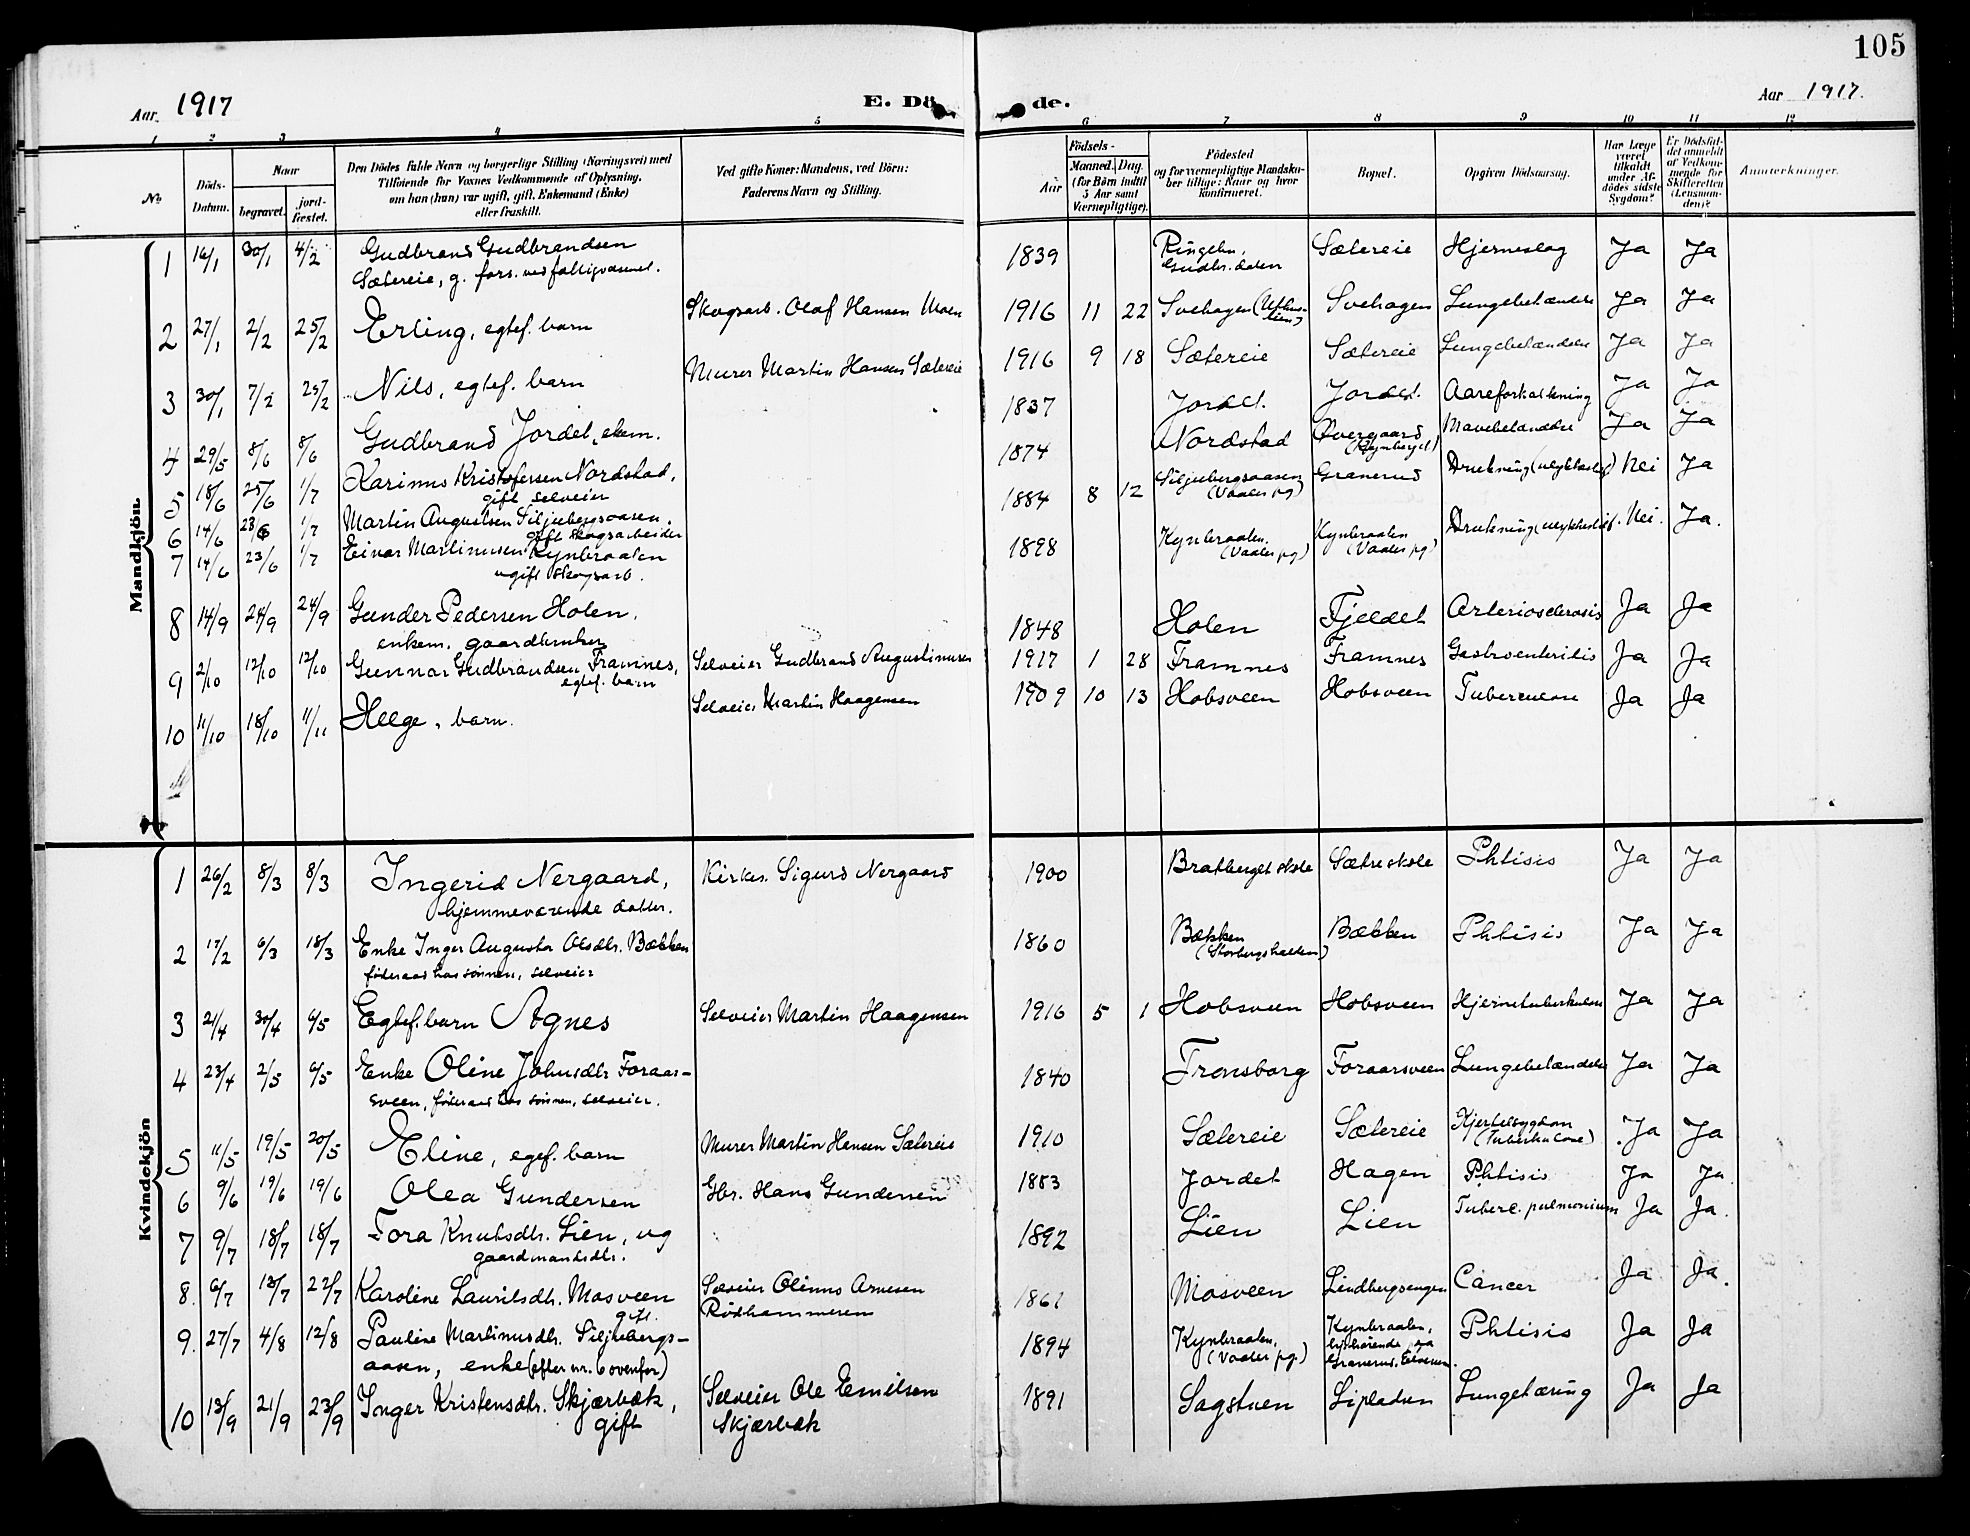 105
Aar 1917
E. Dö de.
Aar 1917.
1 2 3 4 5 6 7 8 9 10 11 12
No.
Döds-Datum.
Naar
begravet.
jord-fæstet.
Den Dödes fulde Navn og borgerlige Stilling (Næringsvei) med
Tilföiende for Voxnes Vedkommende af Oplysning,
om han (hun) var ugift, gift, Enkemand (Enke)
eller fraskilt.
Ved gifte Koner: Mandens, ved Börn:
Faderens Navn og Stilling.
Födsels-
Aar
Maaned. Dag.
(for Börn indtil
5 Aar samt
Værnepligtige).
Födested
og for værnepligtige Mandska-
ber tillige: Naar og hvor
konfirmeret.
Bopæl.
Opgiven Dödsaarsag.
Har Læge
været
tilkaldt
under Af-
dödes sidste
Sygdom?
Er Dödsfal-
det anmeldt
af Vedkom-
mende for
Skifteretten
(Lensman-
den)?
Anmærkninger.
Mandkjön.
1 16/1 30/1 4/2 Gudbrand Gudbrandsen 1839 Ringebu, Sætereie Hjerneslag Ja Ja
Sætereie, g. fors. ved fattigvæsenet. Gudbr.dalen
2 27/1 2/2 25/2 Erling, egtef. barn Skogsarb. Olaf Hansen Moen 1916 11 22 Svehagen Svehagen Lungebetændelse Ja Ja
3 30/1 7/2 25/2 Nils, egtef. barn Murer Martin Hansen Sætereie 1916 9 18 Sætereie Sætereie Lungebetændelse Ja Ja
4 29/5 8/6 8/6 Gudbrand Jordet, ekem. 1837 Jordet. Jordet. Aareforkalkning Ja Ja
5 18/6 25/6 1/7 Karinus Kristofersen Nordstad, 1874 Nordstad Øvergaard Mavebetændelse Ja Ja
gift selveier
6 14/6 23/6 1/7 Martin Augustsen Siljubergsaasen. 1884 8 12 Siljubergsaasen (Vaaler pg) Granerud Drukning Nei Ja
gift skogsarbeider
7 14/6 23/6 1/7 Einar Martinusen Kynbraaten 1898 Kynbraaten. (Vaaler pg) Kynbraaten (Vaaler pg) Drukning Nei. Ja.
ugift skogsarb.
8 14/9 24/9 24/9 Gunder Pedersen Holen, 1848 Holen Fjeldet Arteriosclerosis Ja Ja
enkem. gaardbruker
9 2/10 12/10 12/10 Gunnar Gudbrandsen Framnes, Selveier Gudbrand Augustinusen 1917 1 28 Framnes Framnes Gastroenteritis Ja Ja
egtef. barn
10 11/10 18/10 11/11 Helge, barn. Selveier Martin Haagensen 1909 10 13 Hobsveen Hobsveen Tuberculose Ja Ja
Kvindekjön
1 26/2 8/3 8/3 Ingerid Nergaard, Kirkes. Sigurd Nergaard 1900 Bratberget skole Sætre skole Phtisis Ja Ja
hjemmeværende datter.
2 17/2 6/3 18/3 Enke Inger Augusta Olsdtr. Bækken 1860 Bækken Bækken Phtisis Ja Ja
føderaad hos sønnen, selveier
3 21/4 30/4 6/5 Egtef. barn Agnes Selveier Martin Haagensen 1916 5 1 Hobsveen Hobsveen Hjernetuberkulose Ja Ja
4 23/4 2/5 6/5 Enke Oline Johnsdtr Foraar- 1840 Tronsborg Foraarsveen Lungebetændelse Ja Ja
sveen, føderaad hos sønnen, selveier.
5 11/5 19/5 20/5 Eline, egef. barn Murer Martin Hansen Sætereie 1910 Sætereie Sætereie Kjertelsygdom (Tuberkulose) Ja Ja
6 9/6 19/6 19/6 Olea Gundersen Gbr. Hans Gundersen 1883 Jordet Hagen Phtisis Ja Ja
7 9/7 18/7 18/7 Tora Knutsdtr. Lien, ug 1892 Lien Lien Tuberc. pulmonium Ja Ja.
gaardmandsdtr.
8. 6/7 13/7 22/7 Karoline Lauritsdtr. Mosveen Selveier Olinus Arnesen 1861 Mosveen Lindbergsengen Cancer Ja Ja.
gift. Rødhammeren
9. 27/7 4/8 12/8 Pauline Martinusdtr. Siljubergs- 1894 Kynbraaten. (Vaaler pg.) Kynbraaten, Phtisis Ja Ja
aasen, enke (efter nr. 6 ovenfor)
10 13/9 21/9 23/9 Inger Kristensdtr. Skjærbæk, Selveier Ole Emilsen 1891 Sagstuen Lungetæring Ja Ja
gift Skjærbæk